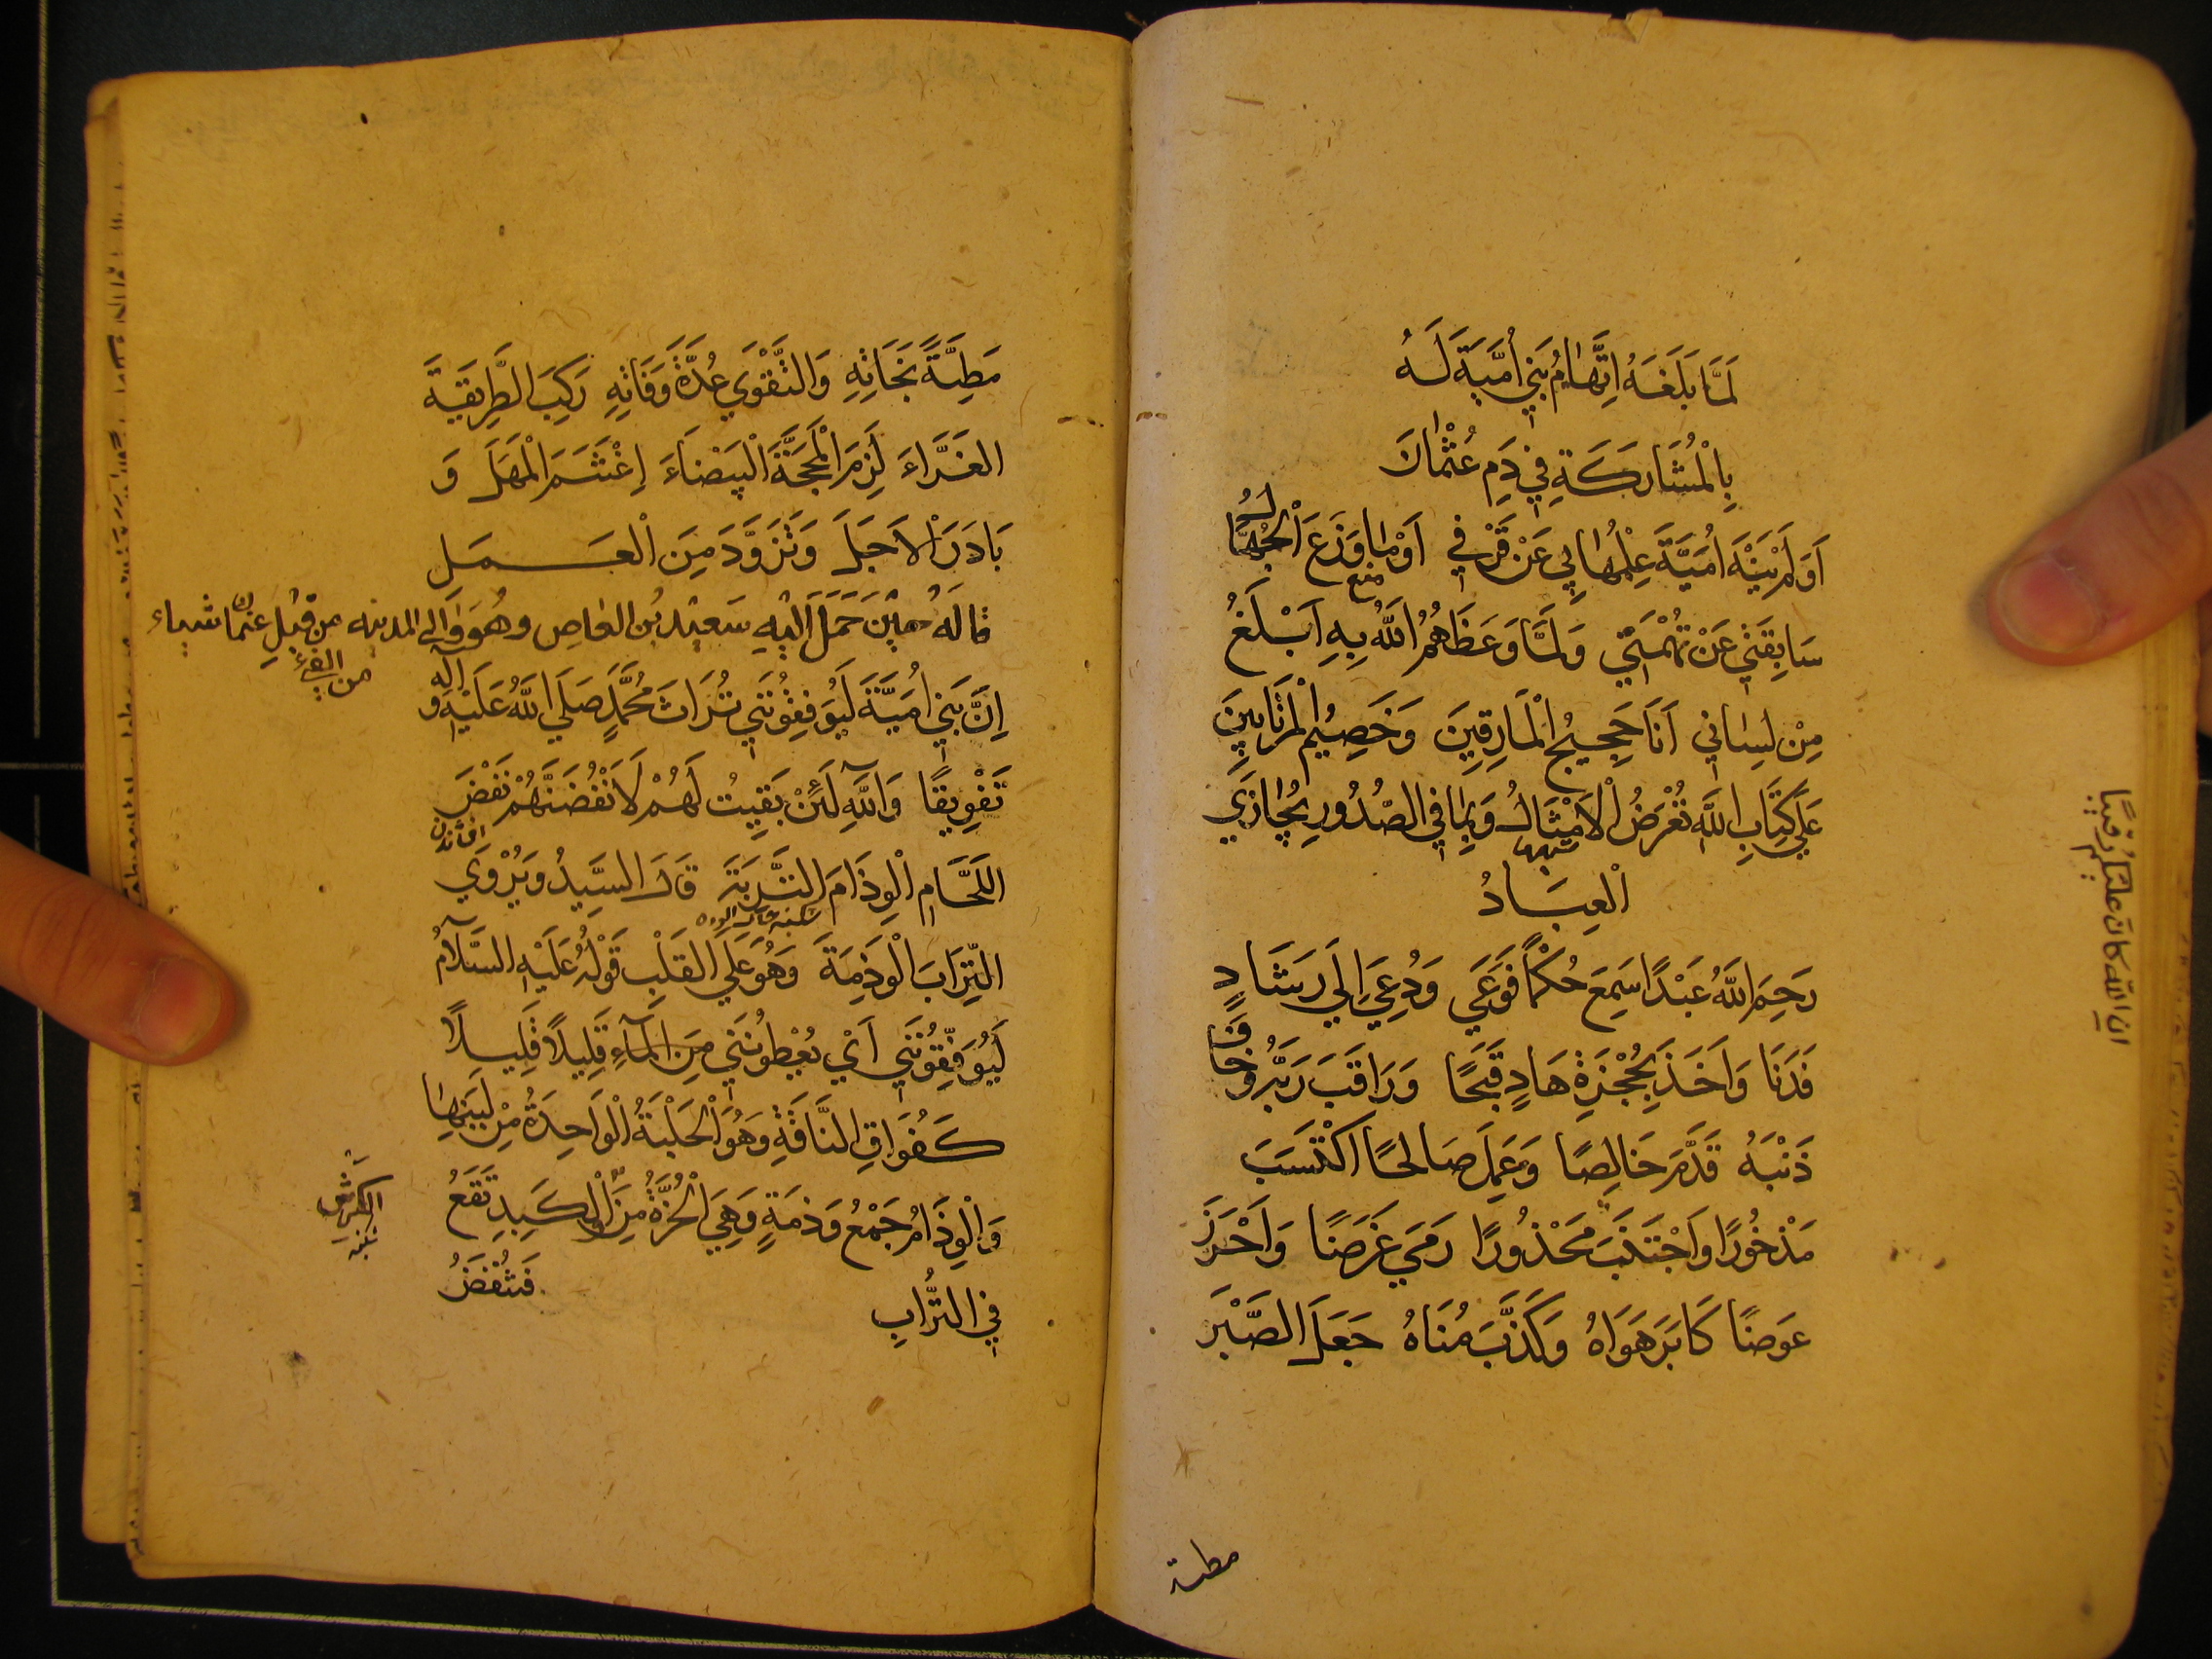 لَمَّا بَلَغَهُ اِتِّهَامُ بَنِي اُمَيَّةَ لَهُ
بِالْمُشَارَكَةِ فِي دَمِ عُثْمَانَ
اَوَلَمْ يَنْهَ اُمَيَّةَ عِلْمُهَا بِي عَنْ قَرْفِي اَوْ مَا وَزَعَ الْجُهَّالَ
منع
سَابِقَتِي عَنْ تُهْمَتِي وَلَمَا وَعَظَهُمُ اللّٰهُ بِهِ اَبْلَغُ
مِنْ لِسَانِي اَنَا حَجِيجُ الْمَارِقِينَ وَخَصِيمُ الْمُرْتَابِينَ
عَلَي كِتَابِ اللّٰهِ تُعْرَضُ الْاَمْثَالُ وَبِمَا فِي الصُّدُورِ يُجَازَي
الْعِبَادُ
رَحِمَ اللّٰهُ عَبْدًا سَمِعَ حُكْمًا فَوَعَي وَدُعِيَ اِلَي رَشَادٍ
فَدَنَا وَاَخَذَ بِحُجْزَةِ هَادٍ فَنَجَا وَرَاقَبَ رَبَّهُ وَخَافَ
ذَنْبَهُ قَدَّمَ خَالِصًا وَعَمِلَ صَالِحًا اكْتَسَبَ
مَذْخُورًا وَاجْتَنَبَ مَحْذُورًا رَمَي غَرَضًا وَاَحْرَزَ
عِوَضًا كَابَرَ هَوَاهُ وَكَذَّبَ مُنَاهُ جَعَلَ الصَّبْرَ
مطية
ان الله كان عليكم رقيبا
مَطِيَّةَ نَجَاتِهِ وَالتَّقْوَي عُدَّةَ وَفَاتِهِ رَكِبَ الطَّرِيقَةَ
الغَرَّاءَ لَزِمَ الْمَحَجَّةَ الْبَيْضَاءَ اِغْتَنَمَ الْمَهَلَ وَ
بَادَرَ الْاَجَلَ وَتَزَوَّدَ مِنَ الْعَمَلِ
قاله حين حمل اليه سعيد بن العاص وهو والي المدينه من قبل عثمان اشياء
من الفيء
اِنَّ بَنِي اُمَيَّةَ لَيُوَفِّقُونَنِي تُرَاثَ مُحَمَّدٍ صَلَي اللّٰهُ عَلَيْهِ وَ آله
تَفْوِيقًا وَاللّٰهِ لَئِنْ بَقِيتُ لَهُمْ لَاَنْفُضَنَّهُمْ نَفْضَ
اللَحَّامِ الْوِذَامَ التَّرِبَةَ قَالَ السَّيِّدُ وَيُرْوَي
التِّرَابَ الْوَذِمَةَ وَهُوَ عَلَي القَلْبِ قَوْلُهُ عَلَيْهِ السَّلَامُ
لَيُوَفِّقُونَنِي اَيْ يُعْطُونَنِي مِنَ الْمَاءِ قَلِيلًا قَلِيلًا
كَفُوَاقِ النَّاقَةِ وَهُوَ الْحَلْبَةُ الْوَاحِدَةُ مِنْ لَبَنِهَا
وَالْوِذَامُ جَمْعُ وَذَمَةٍ وَهِيَ الْحُزَّةُ مِنَ الْكَبِدِ تَقَعُ
فِي التُّرَابِ فَتُنْفَضُ